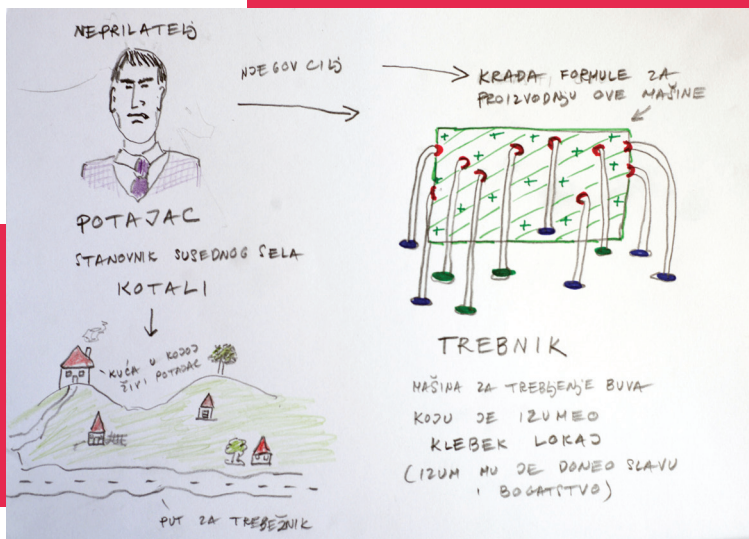 NEPRILATELJ
NJEGOV CILJ
KRAĐA FORMULE ZA
PROIZVODNJU OVE MAŠINE
POTAJAC
STANOVNIK SUSEDNOG SELA
KOTALI
KUĆA U KOJOJ
ŽIVI POTAJAC
PUT ZA TREBEŽNIK
TREBNIK
MAŠINA ZA TREBLJENJE BUVA
KOJU JE IZUMEO
KLEBEK LOKAJ
(IZUM MU JE DONEO SLAVU
I BOGATSTVO)